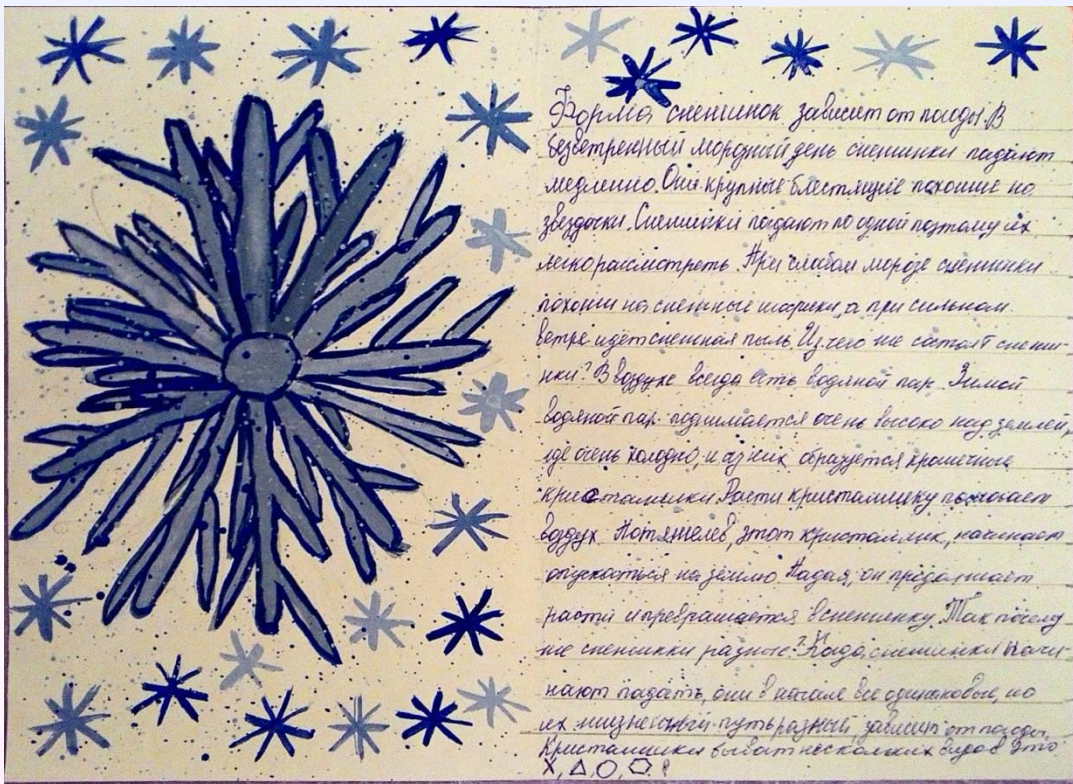 Форма снежинок зависит от погоды. В
безветренный морозный день снежинки падают
медленно. Они крупные блестящие похожие на
звёздочки. Снежинки падают по одной поэтому их
легко рассмотреть. При слабом морозе снежинки
похожи на снежные шарики, а при сильном
ветре идёт снежная пыль. Из чего же состоят снежи-
нки? В воздухе всегда есть водяной пар. Зимой
водяной пар поднимается очень высоко над землёй,
где очень холодно, и из них образуется крошечные
кристаллики. Расти кристаллику помогает
воздух. Потяжелев, этот кристаллик, начинает
опускаться на землю. Падая, он продолжает
расти и превращается в снежинку. Так почему
же снежинки разные? Когда снежинки начи-
нают падать, они в начале все одинаковые, но
их жизненный путь разный, зависит от погоды.
Кристаллики бывают нескольких видов это
X, △, ○, ⬡.